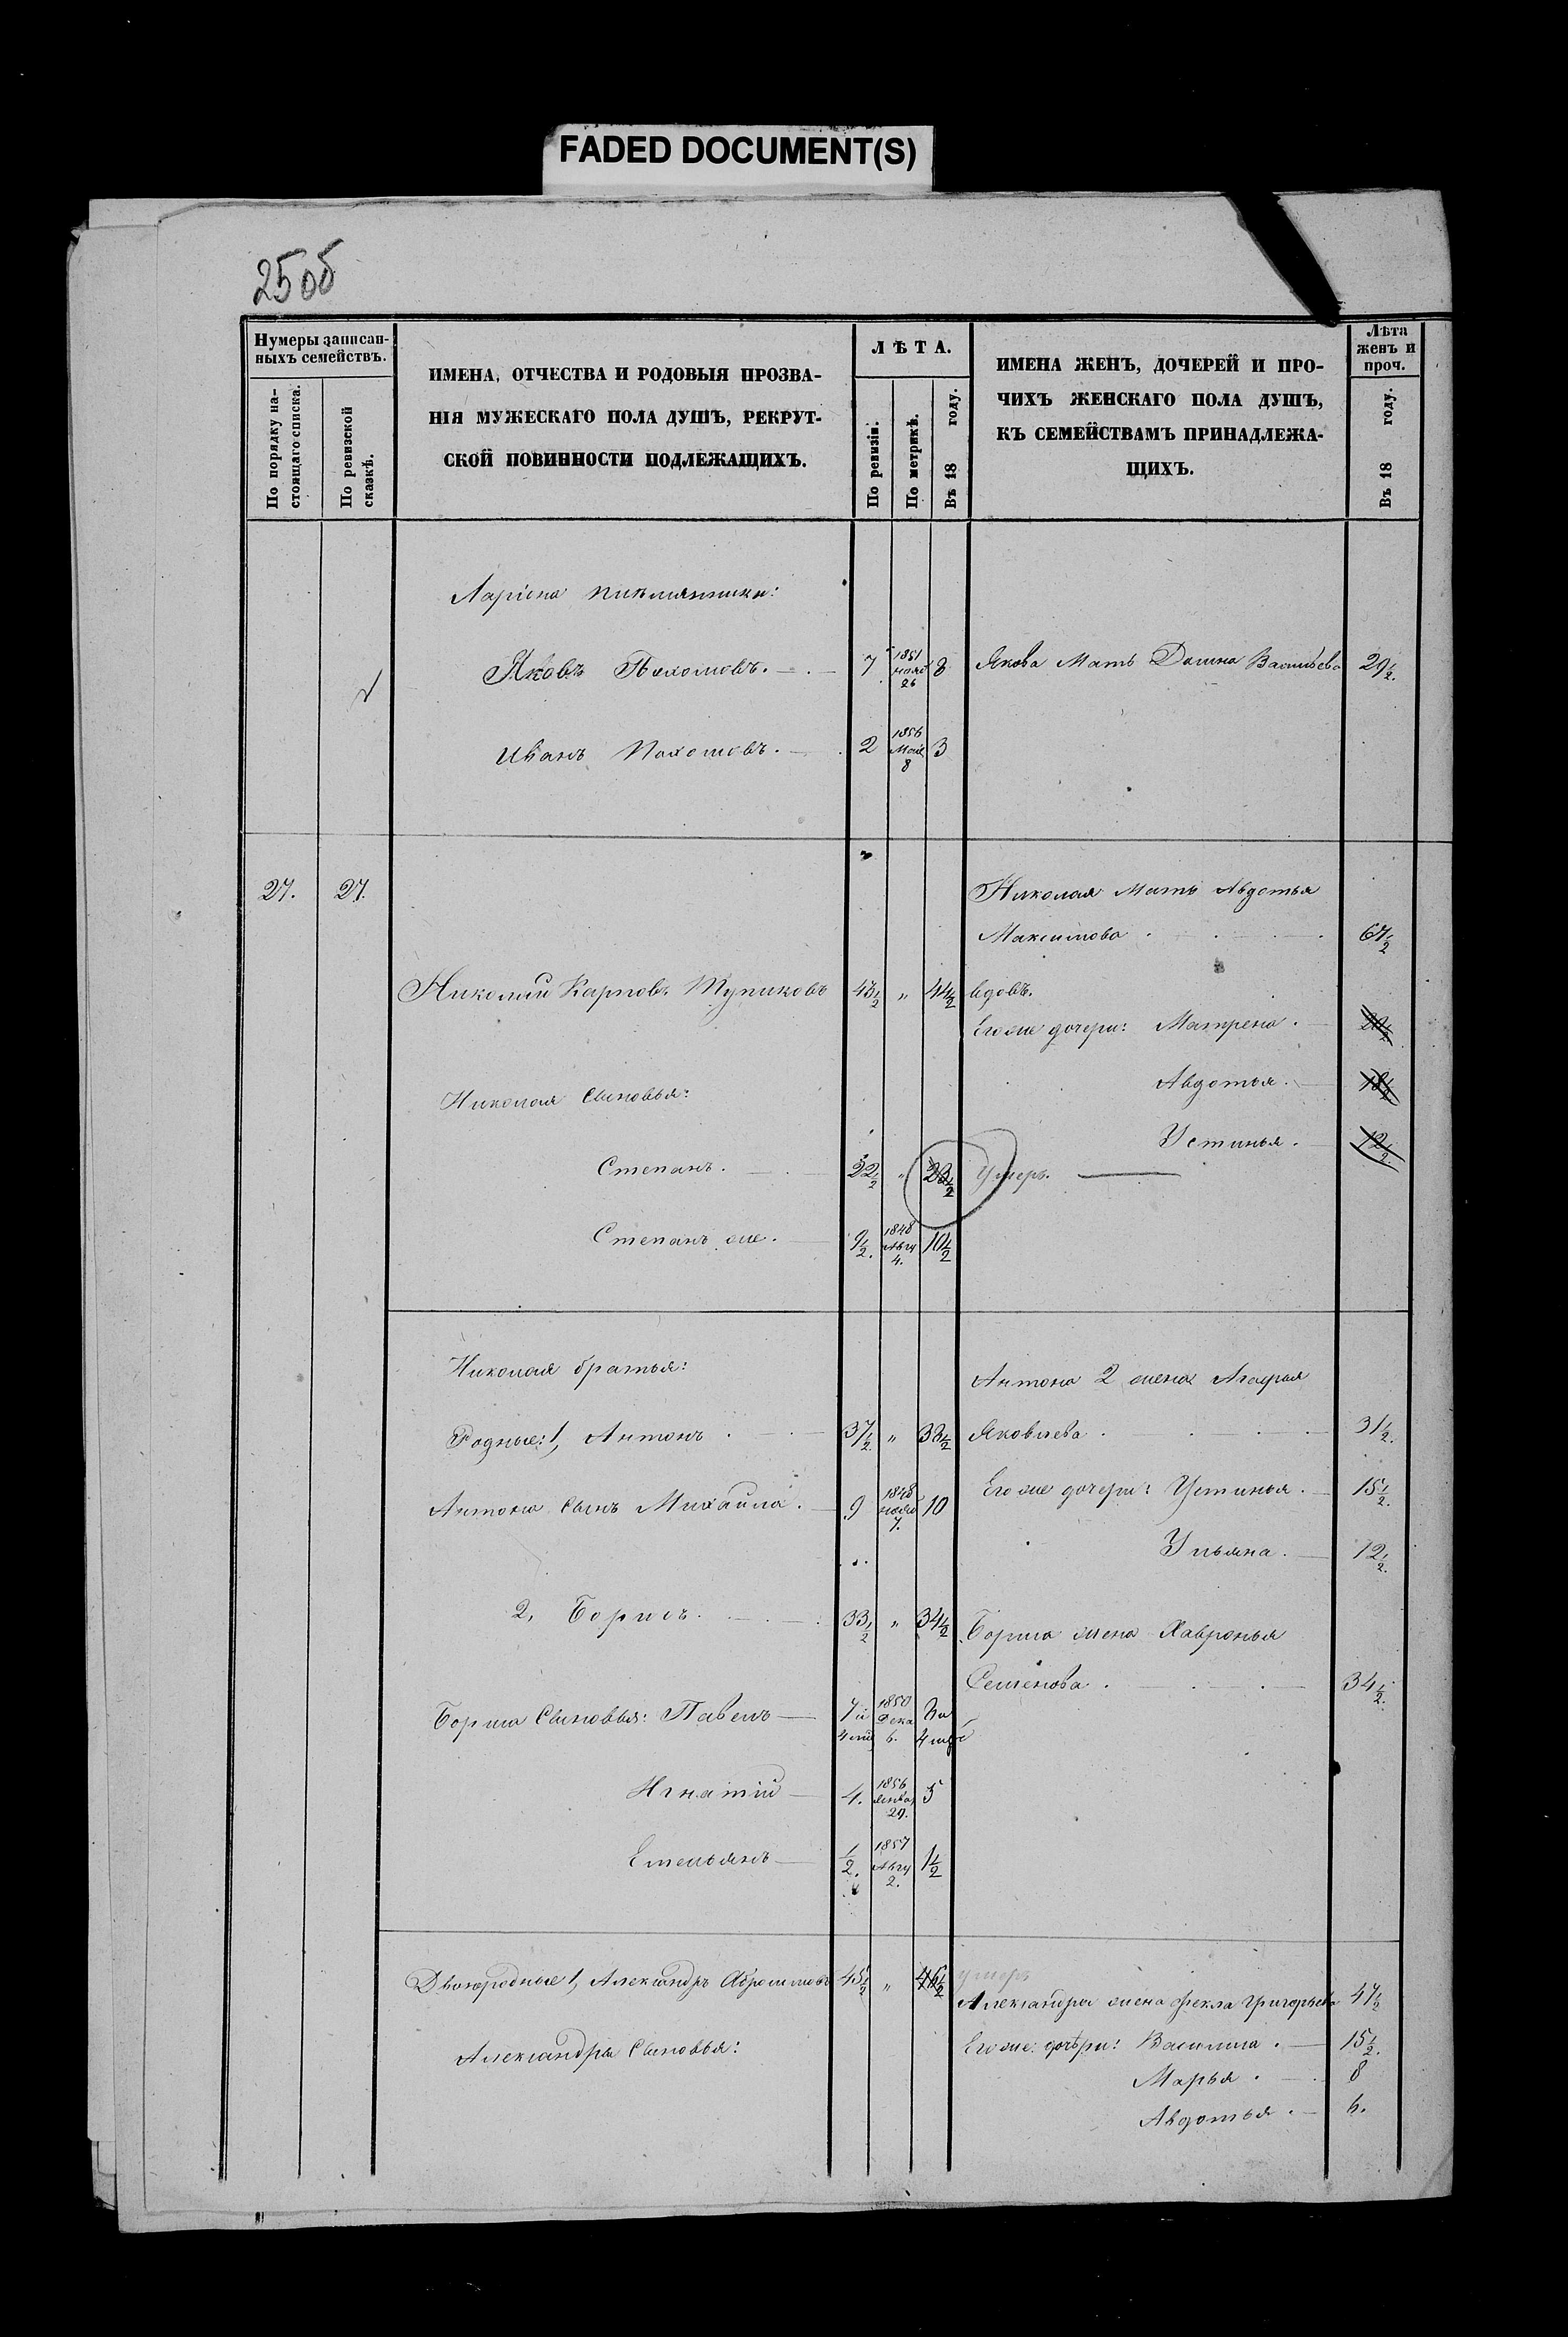 FADED DOCUMENT(S)
25 об
Нумеры записан-
ныхъ семействъ.
По порядку на-
стоящаго списка.
По ревизской
сказкѣ.
ИМЕНА, ОТЧЕСТВА И РОДОВЫЯ ПРОЗВА-
НІЯ МУЖЕСКАГО ПОЛА ДУШЪ, РЕКРУТ-
СКОЙ ПОВИННОСТИ ПОДЛЕЖАЩИХЪ.
ЛѢТА.
По ревизіи.
По метрикѣ.
Въ 18 году.
ИМЕНА ЖЕНЪ, ДОЧЕРЕЙ И ПРО-
ЧИХЪ ЖЕНСКАГО ПОЛА ДУШЪ,
КЪ СЕМЕЙСТВАМЪ ПРИНАДЛЕЖА-
ЩИХЪ.
Лѣта
женъ и
проч.
Въ 18 году.
Ларіона племянники:
Яковъ Пахомовъ. 7 1851 нояб 26 8 Якова Мать Домна Васильева 29½.
Иванъ Пахомовъ. 2 1856 Мая 8 3
27. 27. Николая Мать Авдотья
Максимова 67½
Николай Карповъ Тупиковъ 43½ " 44½ вдовъ.
Его же дочери: Матрена. 20½
Авдотья. 18½
Николая Сыновья:
Устинья. 12½.
Степанъ. 22½ " 23½ Умеръ.
Степанъ же. 9½. 1848 Авгу 4. 10½
Николая братья:
Антона 2 жена Агафья
Родные: 1, Антонъ 37½. " 38½ Яковлева 31½.
Антона Сынъ Михаила. 9 1848 нояб 7. 10 Его же дочери: Устинья. 15½.
Ульяна. 12½.
2, Борисъ. 33½ " 34½ Бориса жена Хавронья
Семенова. 34½.
Бориса Сыновья: Павелъ 7 и 4 мѣ 1850 Дека 6. 8 и 4 мѣс
Игнатій 4. 1856 Янва 29. 5
Емельянъ ½. 1857 Авгу 2. 1½
Двоюродные 1, Александръ Абрамовъ 45½ " 46½ умеръ
Александра жена Фекла Григорьева 47½
Александра Сыновья: Его же дочѣри: Василиса. 15½.
Марья. 8
Авдотья. 6.